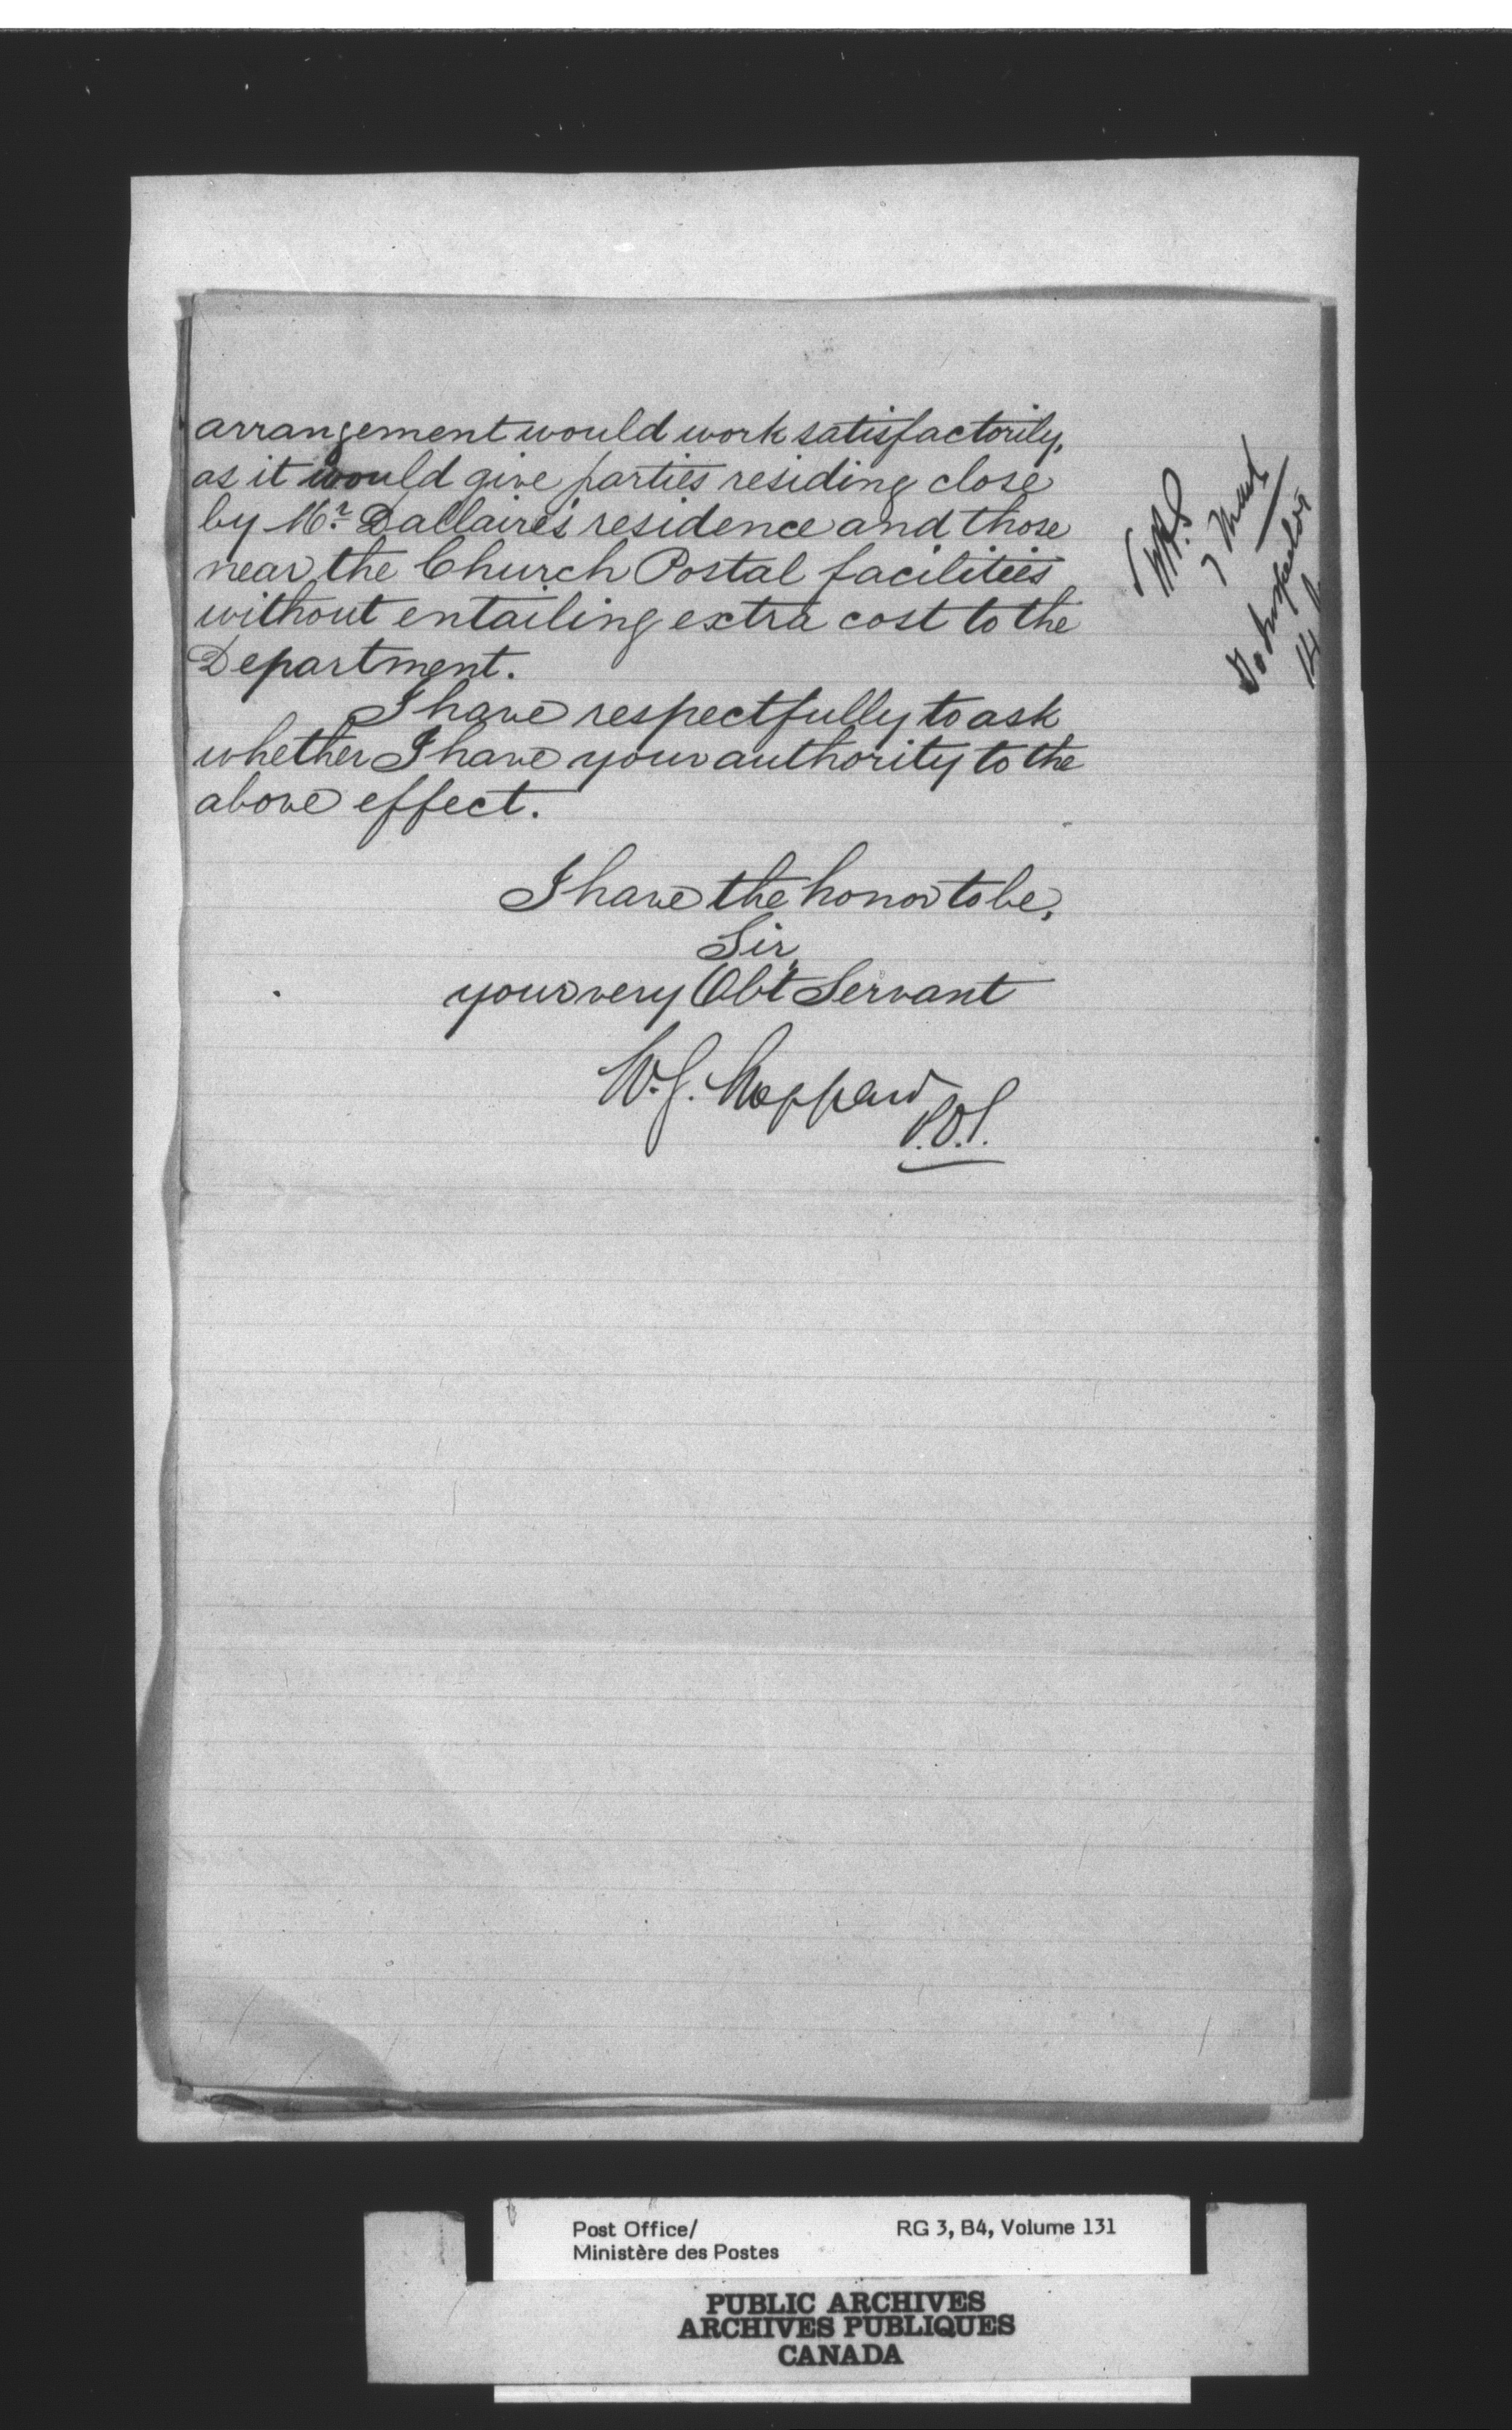 arrangement would work satisfactorily,
as it would give parties residing close
by Mr. Dallaire's residence and those
near the Church Postal facilities
without entailing extra cost to the
Department.
I have respectfully to ask
whether I have your authority to the
above effect.
I have the honor to be,
Sir,
your very Obt Servant
W.G. Sheppard
P.O.I.
7
To Inspector
14
Post Office/
Ministère des Postes
RG 3, B4, Volume 131
PUBLIC ARCHIVES
ARCHIVES PUBLIQUES
CANADA